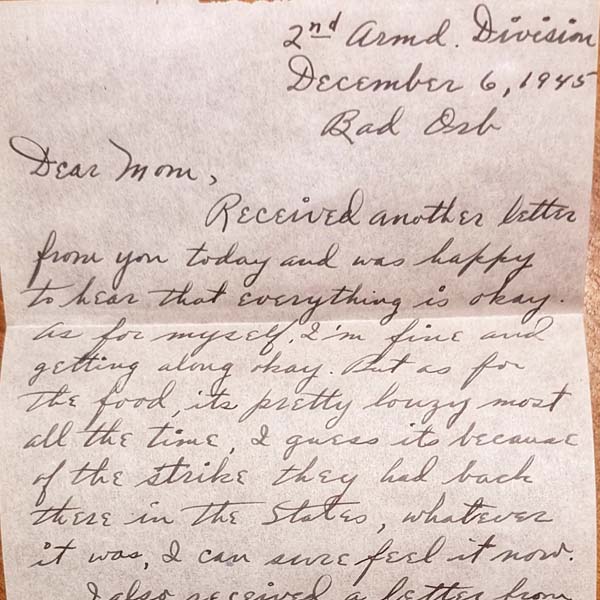 2nd Armd. Division
December 6, 1945
Bad Orb
Dear Mom,
Received another letter
from you today and was happy
to hear that everything is okay.
As for myself, I'm fine and
getting along okay. But as for
the food, its pretty louzy most
all the time, I guess its because
of the strike they had back
there in the States, whatever
it was, I can sure feel it now.
I also received a letter from